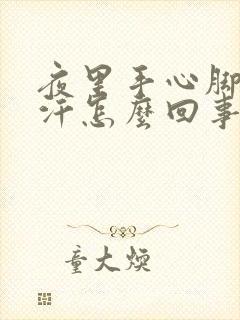 夜里手心脚
汗怎麽回事
童大焕